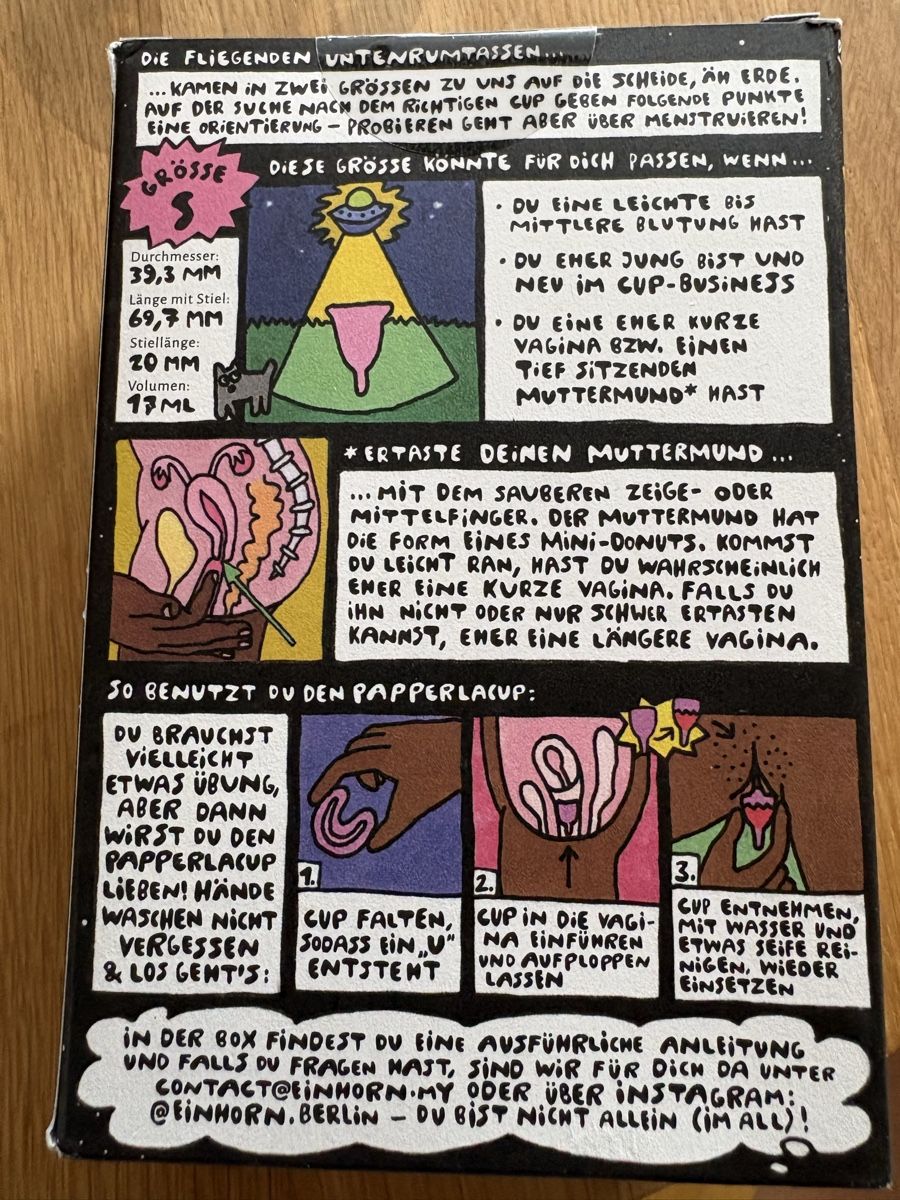 DIE FLIEGENDEN UNTENRUMTASSEN...
...KAMEN IN ZWEI GRÖSSEN ZU UNS AUF DIE SCHEIDE, ÄH ERDE.
AUF DER SUCHE NACH DEM RICHTIGEN CUP GEBEN FOLGENDE PUNKTE
EINE ORIENTIERUNG – PROBIEREN GEHT ABER ÜBER MENSTRUIEREN!
GRÖSSE
S
DIESE GRÖSSE KÖNNTE FÜR DICH PASSEN, WENN...
Durchmesser:
39,3 MM
Länge mit Stiel:
69,7 MM
Stiellänge:
20 MM
Volumen:
17 ML
• DU EINE LEICHTE BIS
MITTLERE BLUTUNG HAST
• DU EHER JUNG BIST UND
NEU IM CUP-BUSINESS
• DU EINE EHER KURZE
VAGINA BZW. EINEN
TIEF SITZENDEN
MUTTERMUND* HAST
*ERTASTE DEINEN MUTTERMUND...
...MIT DEM SAUBEREN ZEIGE- ODER
MITTELFINGER. DER MUTTERMUND HAT
DIE FORM EINES MINI-DONUTS. KOMMST
DU LEICHT RAN, HAST DU WAHRSCHEINLICH
EHER EINE KURZE VAGINA. FALLS DU
IHN NICHT ODER NUR SCHWER ERTASTEN
KANNST, EHER EINE LÄNGERE VAGINA.
SO BENUTZT DU DEN PAPPERLACUP:
DU BRAUCHST
VIELLEICHT
ETWAS ÜBUNG,
ABER DANN
WIRST DU DEN
PAPPERLACUP
LIEBEN! HÄNDE
WASCHEN NICHT
VERGESSEN
& LOS GEHT'S:
1.
CUP FALTEN,
SODASS EIN „U"
ENTSTEHT
2.
CUP IN DIE VAGI-
NA EINFÜHREN
UND AUFPLOPPEN
LASSEN
3.
CUP ENTNEHMEN,
MIT WASSER UND
ETWAS SEIFE REI-
NIGEN, WIEDER
EINSETZEN
IN DER BOX FINDEST DU EINE AUSFÜHRLICHE ANLEITUNG
UND FALLS DU FRAGEN HAST, SIND WIR FÜR DICH DA UNTER
CONTACT@EINHORN.MY ODER ÜBER INSTAGRAM:
@EINHORN.BERLIN – DU BIST NICHT ALLEIN (IM ALL)!